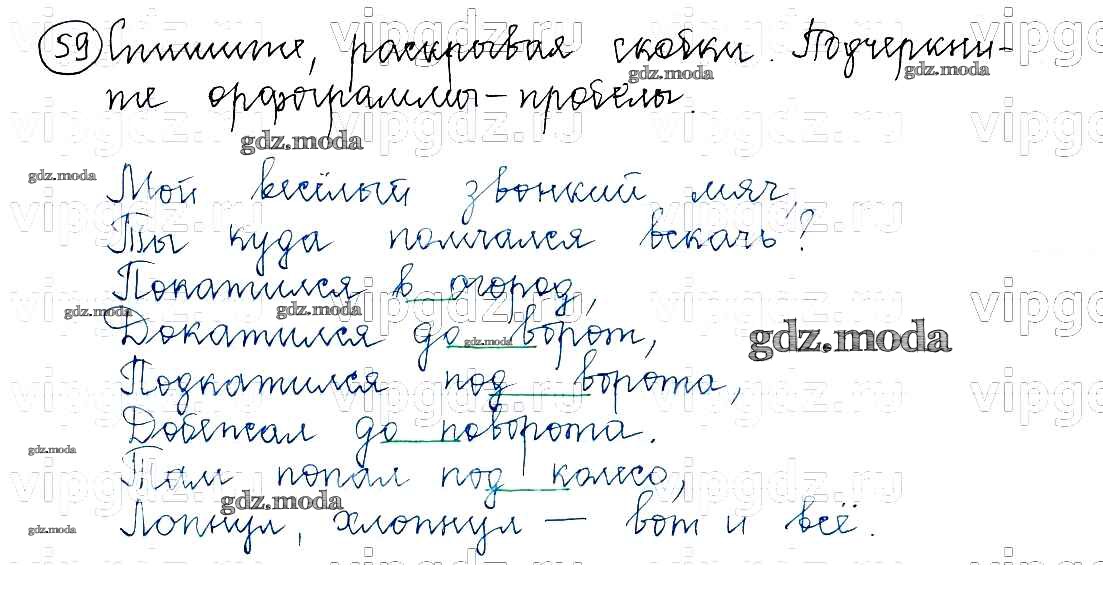 59 Спишите, раскрывая скобки. Подчеркни-
те орфограммы-пробелы.
Мой весёлый звонкий мяч,
Ты куда помчался вскачь?
Покатился в огород,
Докатился до ворот,
Подкатился под ворота,
Добежал до поворота.
Там попал под колесо,
Лопнул, хлопнул – вот и всё.
gdz.moda
vipgdz.ru